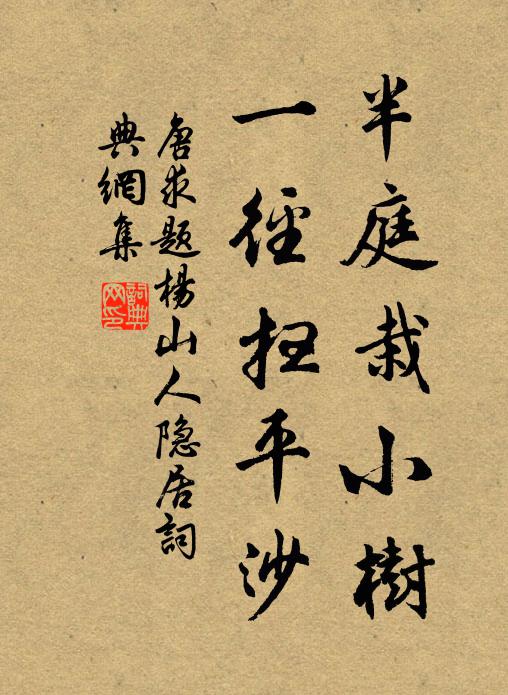 半庭栽小樹
一徑掃平沙
唐求題楊山人隐居詞
典網集
詞典
网印